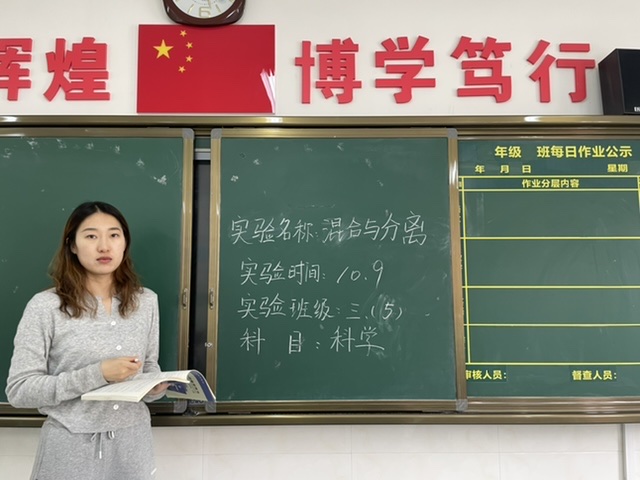 辉煌
博学笃行
实验名称:混合与分离
实验时间:10.9
实验班级:三.(5)
科 目:科学
年级 班每日作业公示
年 月 日 星期
作业分层内容
审核人员: 督查人员: